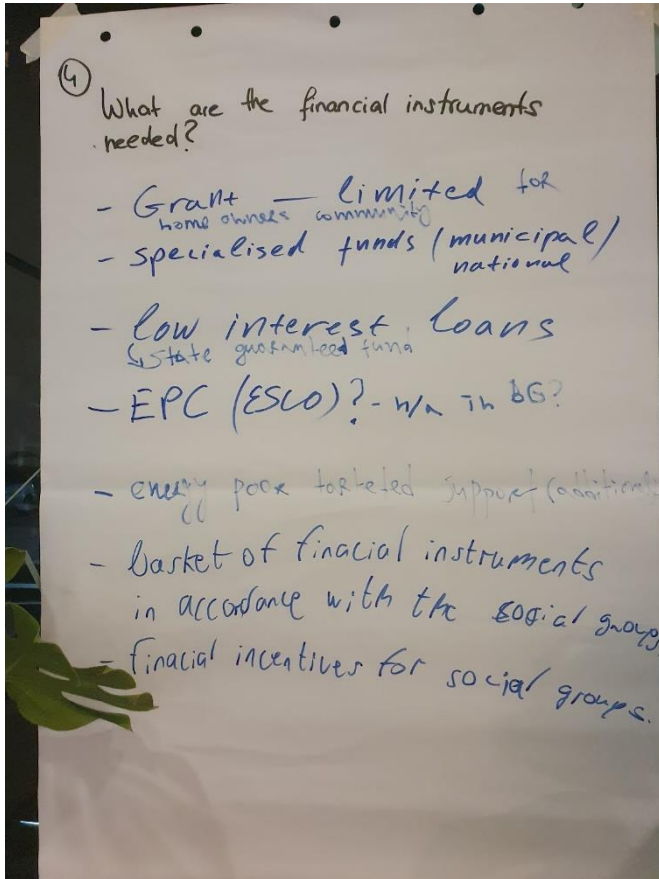 4
What are the financial instruments
needed?
- Grant — limited for
home owners community
- specialised funds (municipal/
national
- low interest loans
↳ State guaranteed fund
- EPC (ESCO)? - n/a in BG?
- energy poor targeted support (additional)
- basket of finacial instruments
in accordance with the social groups
- finacial incentives for social groups.